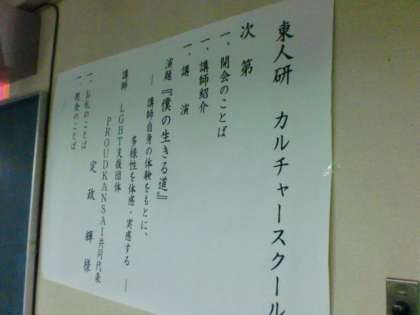 東人研 カルチャースクール
次第
一、開会のことば
一、講師紹介
一、講演
演題『僕の生きる道』
── 講師自身の体験をもとに、
多様性を体感・実感する ──
講師 LGBT支援団体
PROUDKANSAI共同代表
定政 輝 様
一、お礼のことば
一、閉会のことば